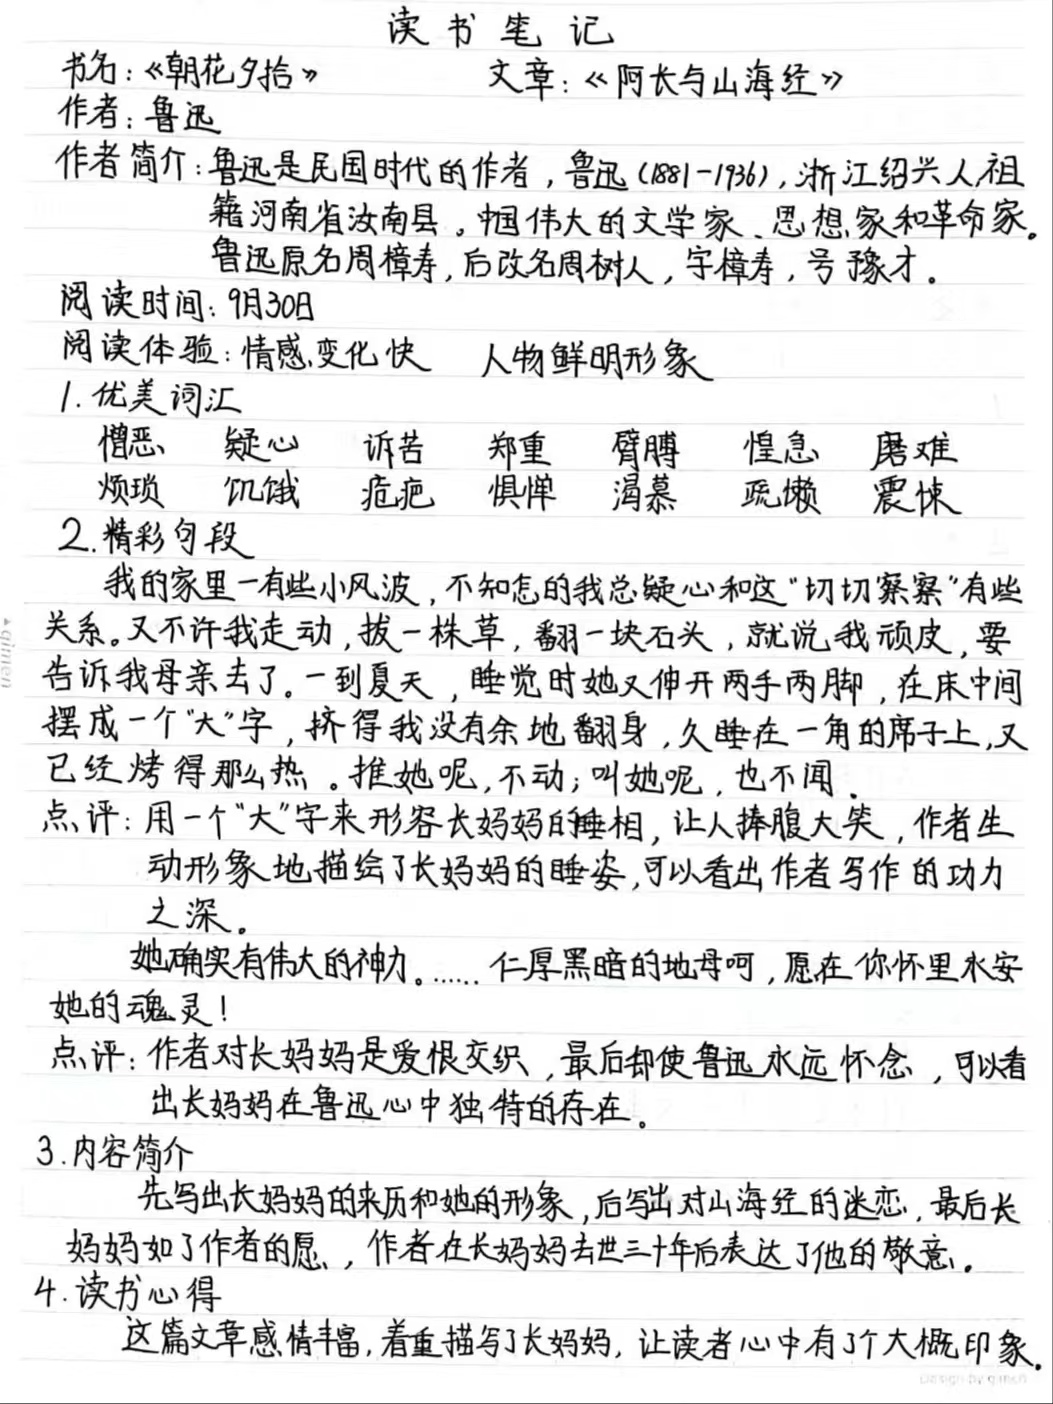 读书笔记
书名：《朝花夕拾》 文章：《阿长与山海经》
作者：鲁迅
作者简介：鲁迅是民国时代的作者，鲁迅（1881-1936），浙江绍兴人，祖
籍河南省汝南县。中国伟大的文学家、思想家和革命家。
鲁迅原名周樟寿，后改名周树人，字樟寿，号豫才。
阅读时间：9月30日
阅读体验：情感变化快 人物鲜明形象
1.优美词汇
憎恶 疑心 诉苦 郑重 臂膊 惶急 磨难
烦琐 饥饿 疮疤 惧惮 渴慕 疏懒 震悚
2.精彩句段
我的家里一有些小风波，不知怎的我总疑心和这“切切察察”有些
关系。又不许我走动，拔一株草，翻一块石头，就说我顽皮，要
告诉我母亲去了。一到夏天，睡觉时她又伸开两手两脚，在床中间
摆成一个“大”字，挤得我没有余地翻身，久睡在一角的席子上，又
已经烤得那么热。推她呢，不动；叫她呢，也不闻。
点评：用一个“大”字来形容长妈妈的睡相，让人捧腹大笑，作者生
动形象地描绘了长妈妈的睡姿，可以看出作者写作的功力
之深。
她确实有伟大的神力。…… 仁厚黑暗的地母呵，愿在你怀里永安
她的魂灵！
点评：作者对长妈妈是爱恨交织，最后却使鲁迅永远怀念，可以看
出长妈妈在鲁迅心中独特的存在。
3.内容简介
先写出长妈妈的来历和她的形象，后写出对山海经的迷恋，最后长
妈妈如了作者的愿，作者在长妈妈去世三十年后表达了他的敬意。
4.读书心得
这篇文章感情丰富，着重描写了长妈妈，让读者心中有了个大概印象。
qimen
Design by qimen